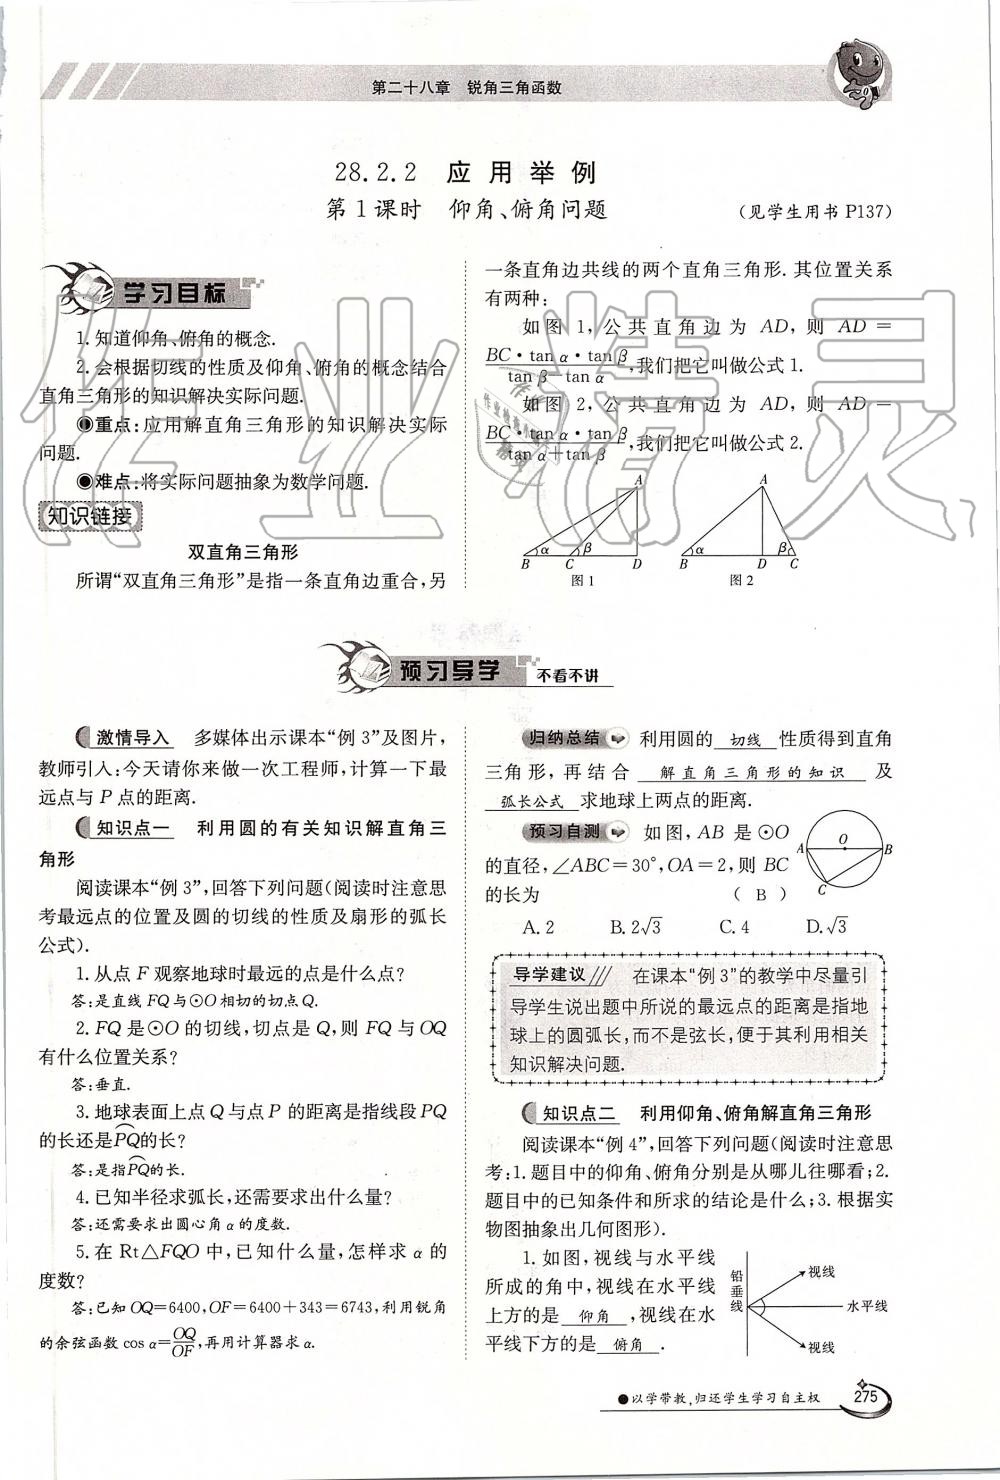 第二十八章　锐角三角函数
28.2.2　应用举例
第1课时　仰角、俯角问题
(见学生用书 P137)
学习目标
1.知道仰角、俯角的概念.
2.会根据切线的性质及仰角、俯角的概念结合
直角三角形的知识解决实际问题.
●重点:应用解直角三角形的知识解决实际
问题.
●难点:将实际问题抽象为数学问题.
知识链接
双直角三角形
所谓“双直角三角形”是指一条直角边重合,另
一条直角边共线的两个直角三角形.其位置关系
有两种:
如图 1,公共直角边为 AD,则 AD=
BC·tan α·tan β/(tan β−tan α),我们把它叫做公式1.
如图 2,公共直角边为 AD,则 AD=
BC·tan α·tan β/(tan α+tan β),我们把它叫做公式2.
A
B α C β D
图1
A
B α D β C
图2
预习导学　不看不讲
激情导入　多媒体出示课本“例3”及图片,
教师引入:今天请你来做一次工程师,计算一下最
远点与 P 点的距离.
知识点一　利用圆的有关知识解直角三
角形
阅读课本“例3”,回答下列问题(阅读时注意思
考最远点的位置及圆的切线的性质及扇形的弧长
公式).
1.从点 F 观察地球时最远的点是什么点?
答:是直线 FQ与⊙O相切的切点Q.
2.FQ 是⊙O 的切线,切点是 Q,则 FQ 与 OQ
有什么位置关系?
答:垂直.
3.地球表面上点 Q 与点 P 的距离是指线段 PQ
的长还是⌒PQ的长?
答:是指⌒PQ的长.
4.已知半径求弧长,还需要求出什么量?
答:还需要求出圆心角α的度数.
5.在 Rt△FQO 中,已知什么量,怎样求 α 的
度数?
答:已知 OQ=6400,OF=6400+343=6743,利用锐角
的余弦函数 cos α=OQ/OF,再用计算器求α.
归纳总结　利用圆的 切线 性质得到直角
三角形,再结合 解直角三角形的知识 及
弧长公式 求地球上两点的距离.
预习自测　如图,AB 是⊙O
的直径,∠ABC=30°,OA=2,则 BC
的长为　( B )
A O B
C
A.2　B.2√3　C.4　D.√3
导学建议　在课本“例3”的教学中尽量引
导学生说出题中所说的最远点的距离是指地
球上的圆弧长,而不是弦长,便于其利用相关
知识解决问题.
知识点二　利用仰角、俯角解直角三角形
阅读课本“例4”,回答下列问题(阅读时注意思
考:1.题目中的仰角、俯角分别是从哪儿往哪看;2.
题目中的已知条件和所求的结论是什么;3.根据实
物图抽象出几何图形).
1.如图,视线与水平线
所成的角中,视线在水平线
上方的是 仰角 ,视线在水
平线下方的是 俯角 .
铅垂线
视线
水平线
视线
●以学带教,归还学生学习自主权
275
作业精灵